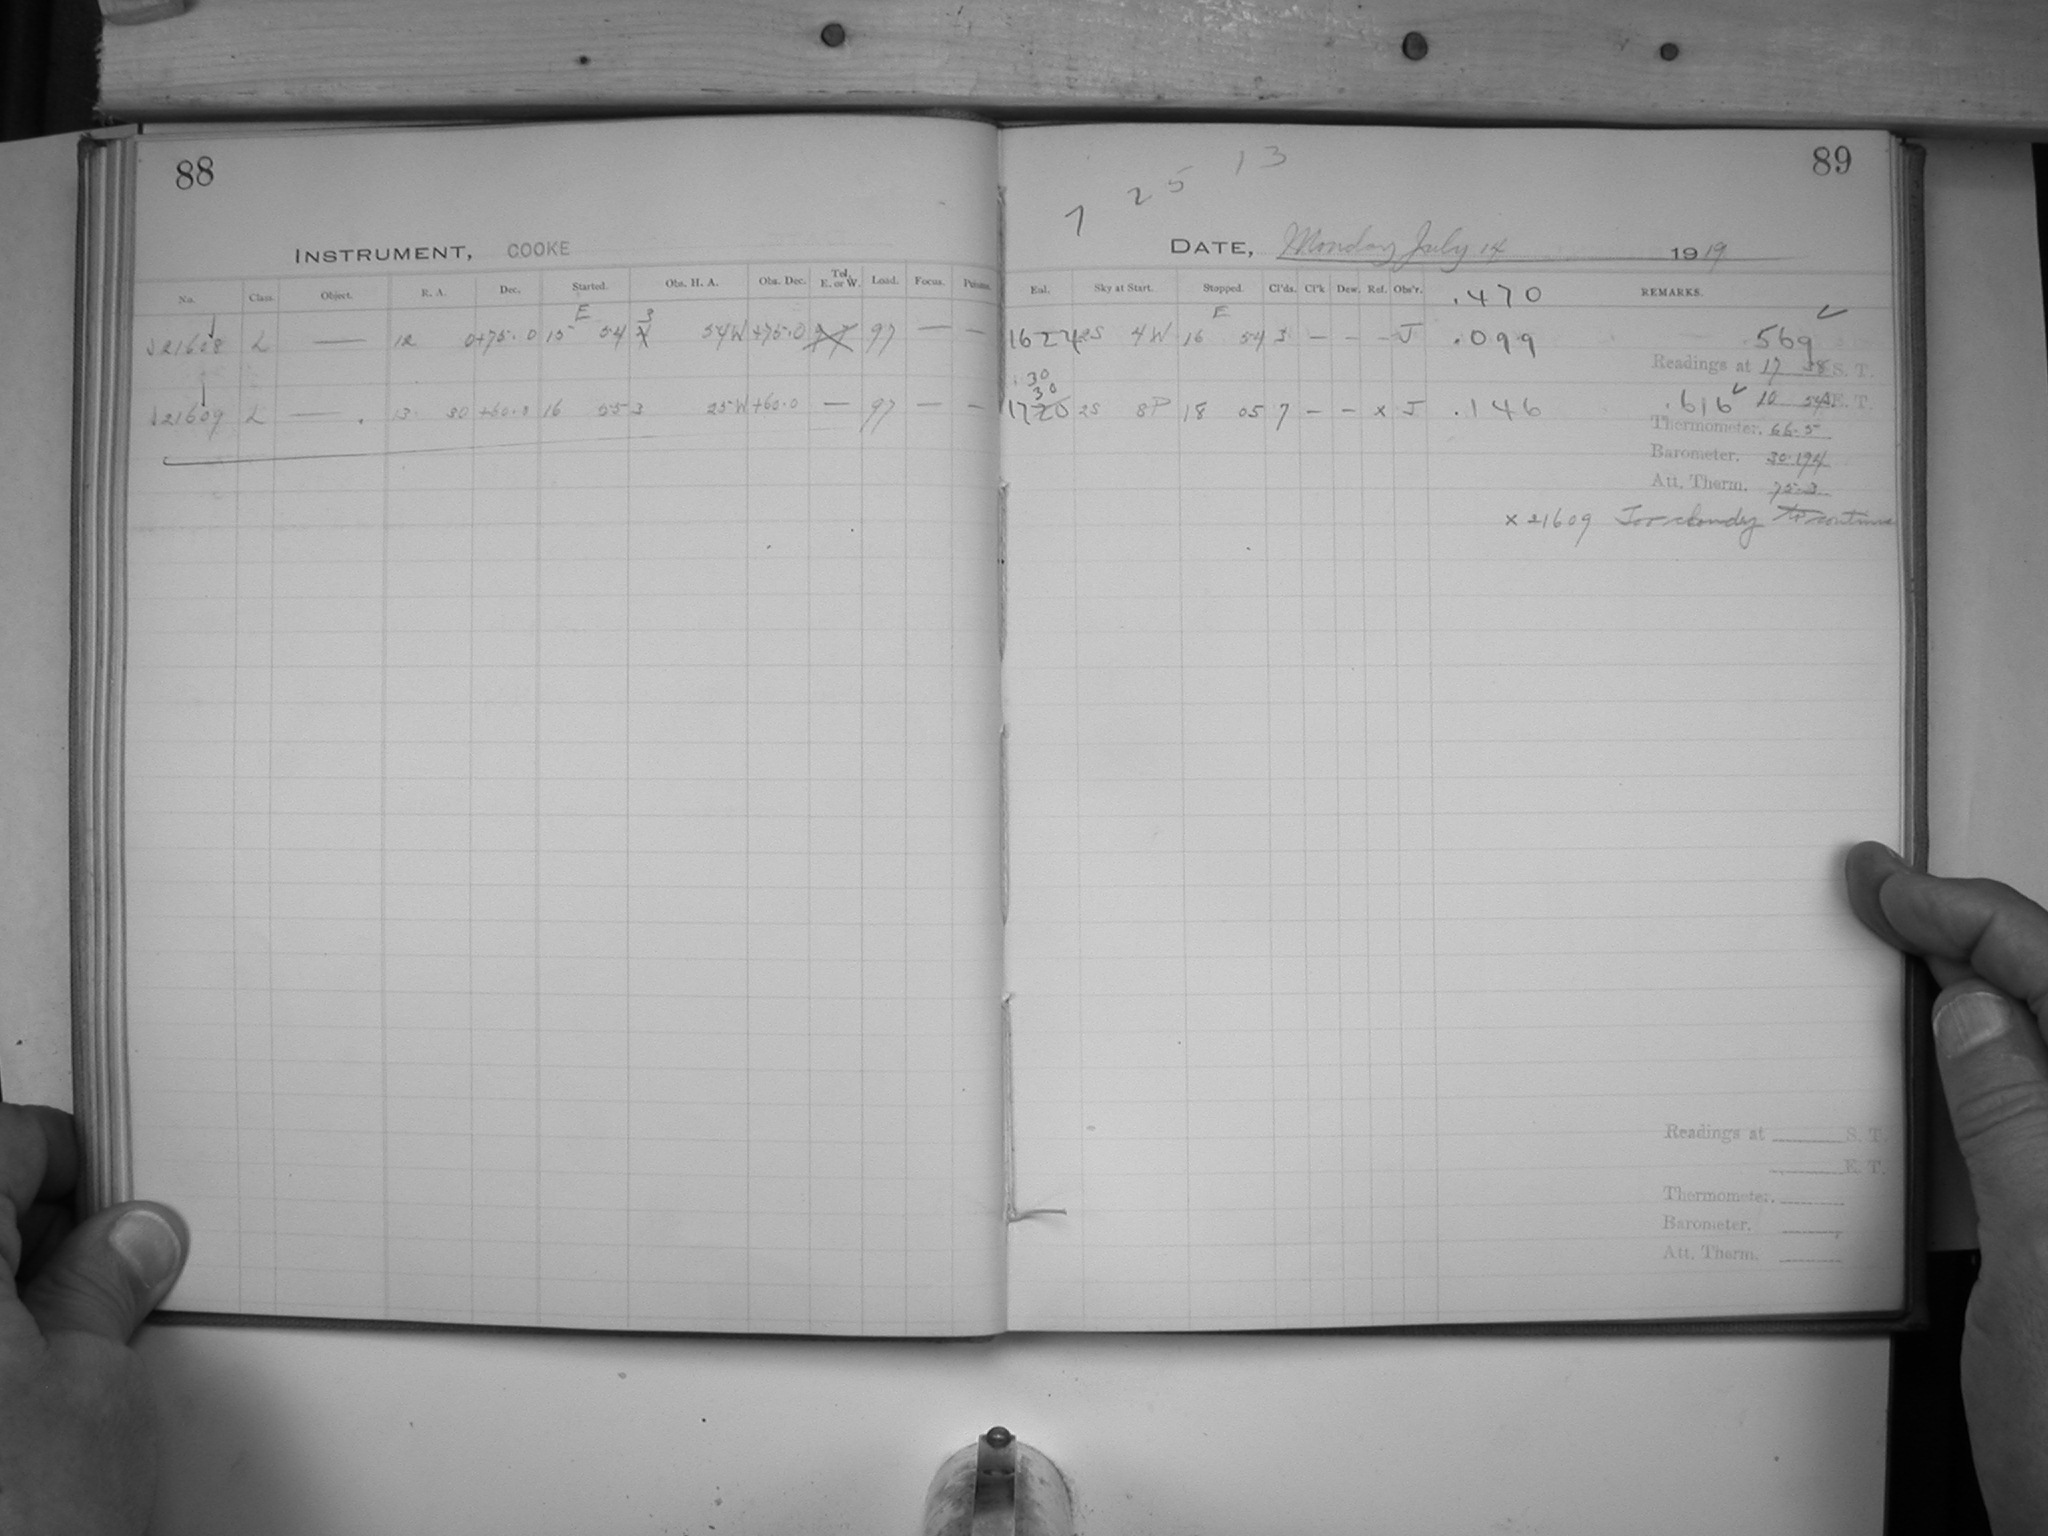 88
INSTRUMENT, COOKE
No. Class. Object. R. A. Dec. Started. Obs. H. A. Obs. Dec. Tel. E. or W. Load. Focus.
E 3
J21608 L — 12 0 +75.0 15 54 54W +75.0 97 — —
J21609 L — 13 30 +60.0 16 55 3 25W +60.0 — 97 — —
89
7 25 13
DATE, Monday July 14 1919
Eal. Sky at Start. Stopped. Cl'ds. Cl'k Dew. Ref. Obs'r. .470 REMARKS.
E
1624 2S 4W 16 54 3 — — — J .099 .569 ✓
Readings at 17 38 S. T.
30
30
17 2S 8P 18 05 7 — — x J .146 .616 ✓ 10 54 E. T.
Thermometer. 66.5
Barometer. 30.194
Att. Therm. 75.3
x 21609 Too cloudy to continue
Readings at S. T.
E. T.
Thermometer.
Barometer.
Att. Therm.